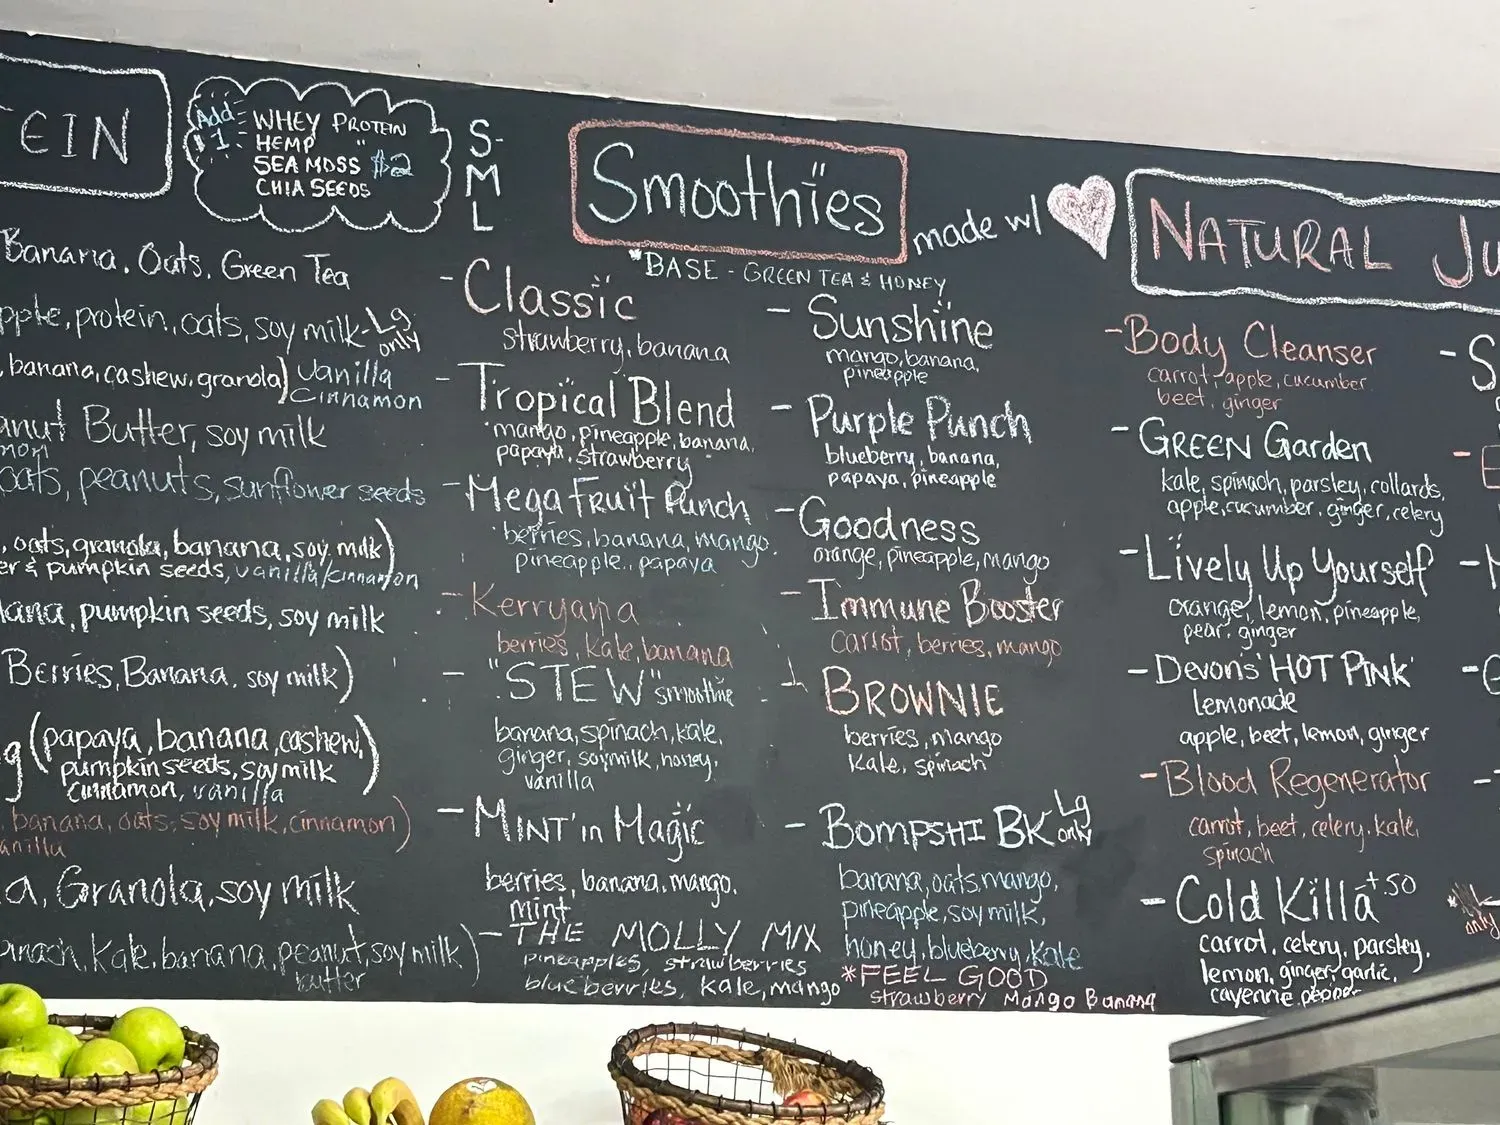 EIN
Add WHEY PROTEIN
1 HEMP "
SEA MOSS $2
CHIA SEEDS
Banana, Oats, Green Tea
apple, protein, oats, soy milk - Lg
only
, banana, cashew, granola) vanilla
cinnamon
anut Butter, soy milk
mon
oats, peanuts, sunflower seeds
, oats, granola, banana, soy milk)
er & pumpkin seeds, vanilla/cinnamon
ana, pumpkin seeds, soy milk
Berries, Banana, soy milk)
g (papaya, banana, cashew,
pumpkin seeds, soy milk
cinnamon, vanilla)
, banana, oats, soy milk, cinnamon)
anilla
a, Granola, soy milk
pinach, kale, banana, peanut, soy milk)
butter
S
M
L
Smoothies
made w/
*BASE - GREEN TEA & HONEY
- Classic
strawberry, banana
- Tropical Blend
mango, pineapple, banana,
papaya, strawberry
- Mega Fruit Punch
berries, banana, mango,
pineapple, papaya
- Kerryana
berries, kale, banana
- "STEW" smoothie
banana, spinach, kale,
ginger, soymilk, honey,
vanilla
- MINT' in Magic
berries, banana, mango,
mint
- THE MOLLY MIX
pineapples, strawberries
blueberries, kale, mango
- Sunshine
mango, banana,
pineapple
- Purple Punch
blueberry, banana,
papaya, pineapple
- Goodness
orange, pineapple, mango
- Immune Booster
carrot, berries, mango
- BROWNIE
berries, mango
kale, spinach
- BOMPSHI BK Lg
only
banana, oats, mango,
pineapple, soy milk,
honey, blueberry, kale
*FEEL GOOD
strawberry Mango Banana
NATURAL Ju
- Body Cleanser
carrot, apple, cucumber
beet, ginger
- GREEN Garden
kale, spinach, parsley, collards,
apple, cucumber, ginger, celery
- Lively Up Yourself
orange, lemon, pineapple,
pear, ginger
- Devon's 'HOT PINK'
Lemonade
apple, beet, lemon, ginger
- Blood Regenerator
carrot, beet, celery, kale,
spinach
- Cold Killa +50
carrot, celery, parsley,
lemon, ginger, garlic,
cayenne pepper
- S
only